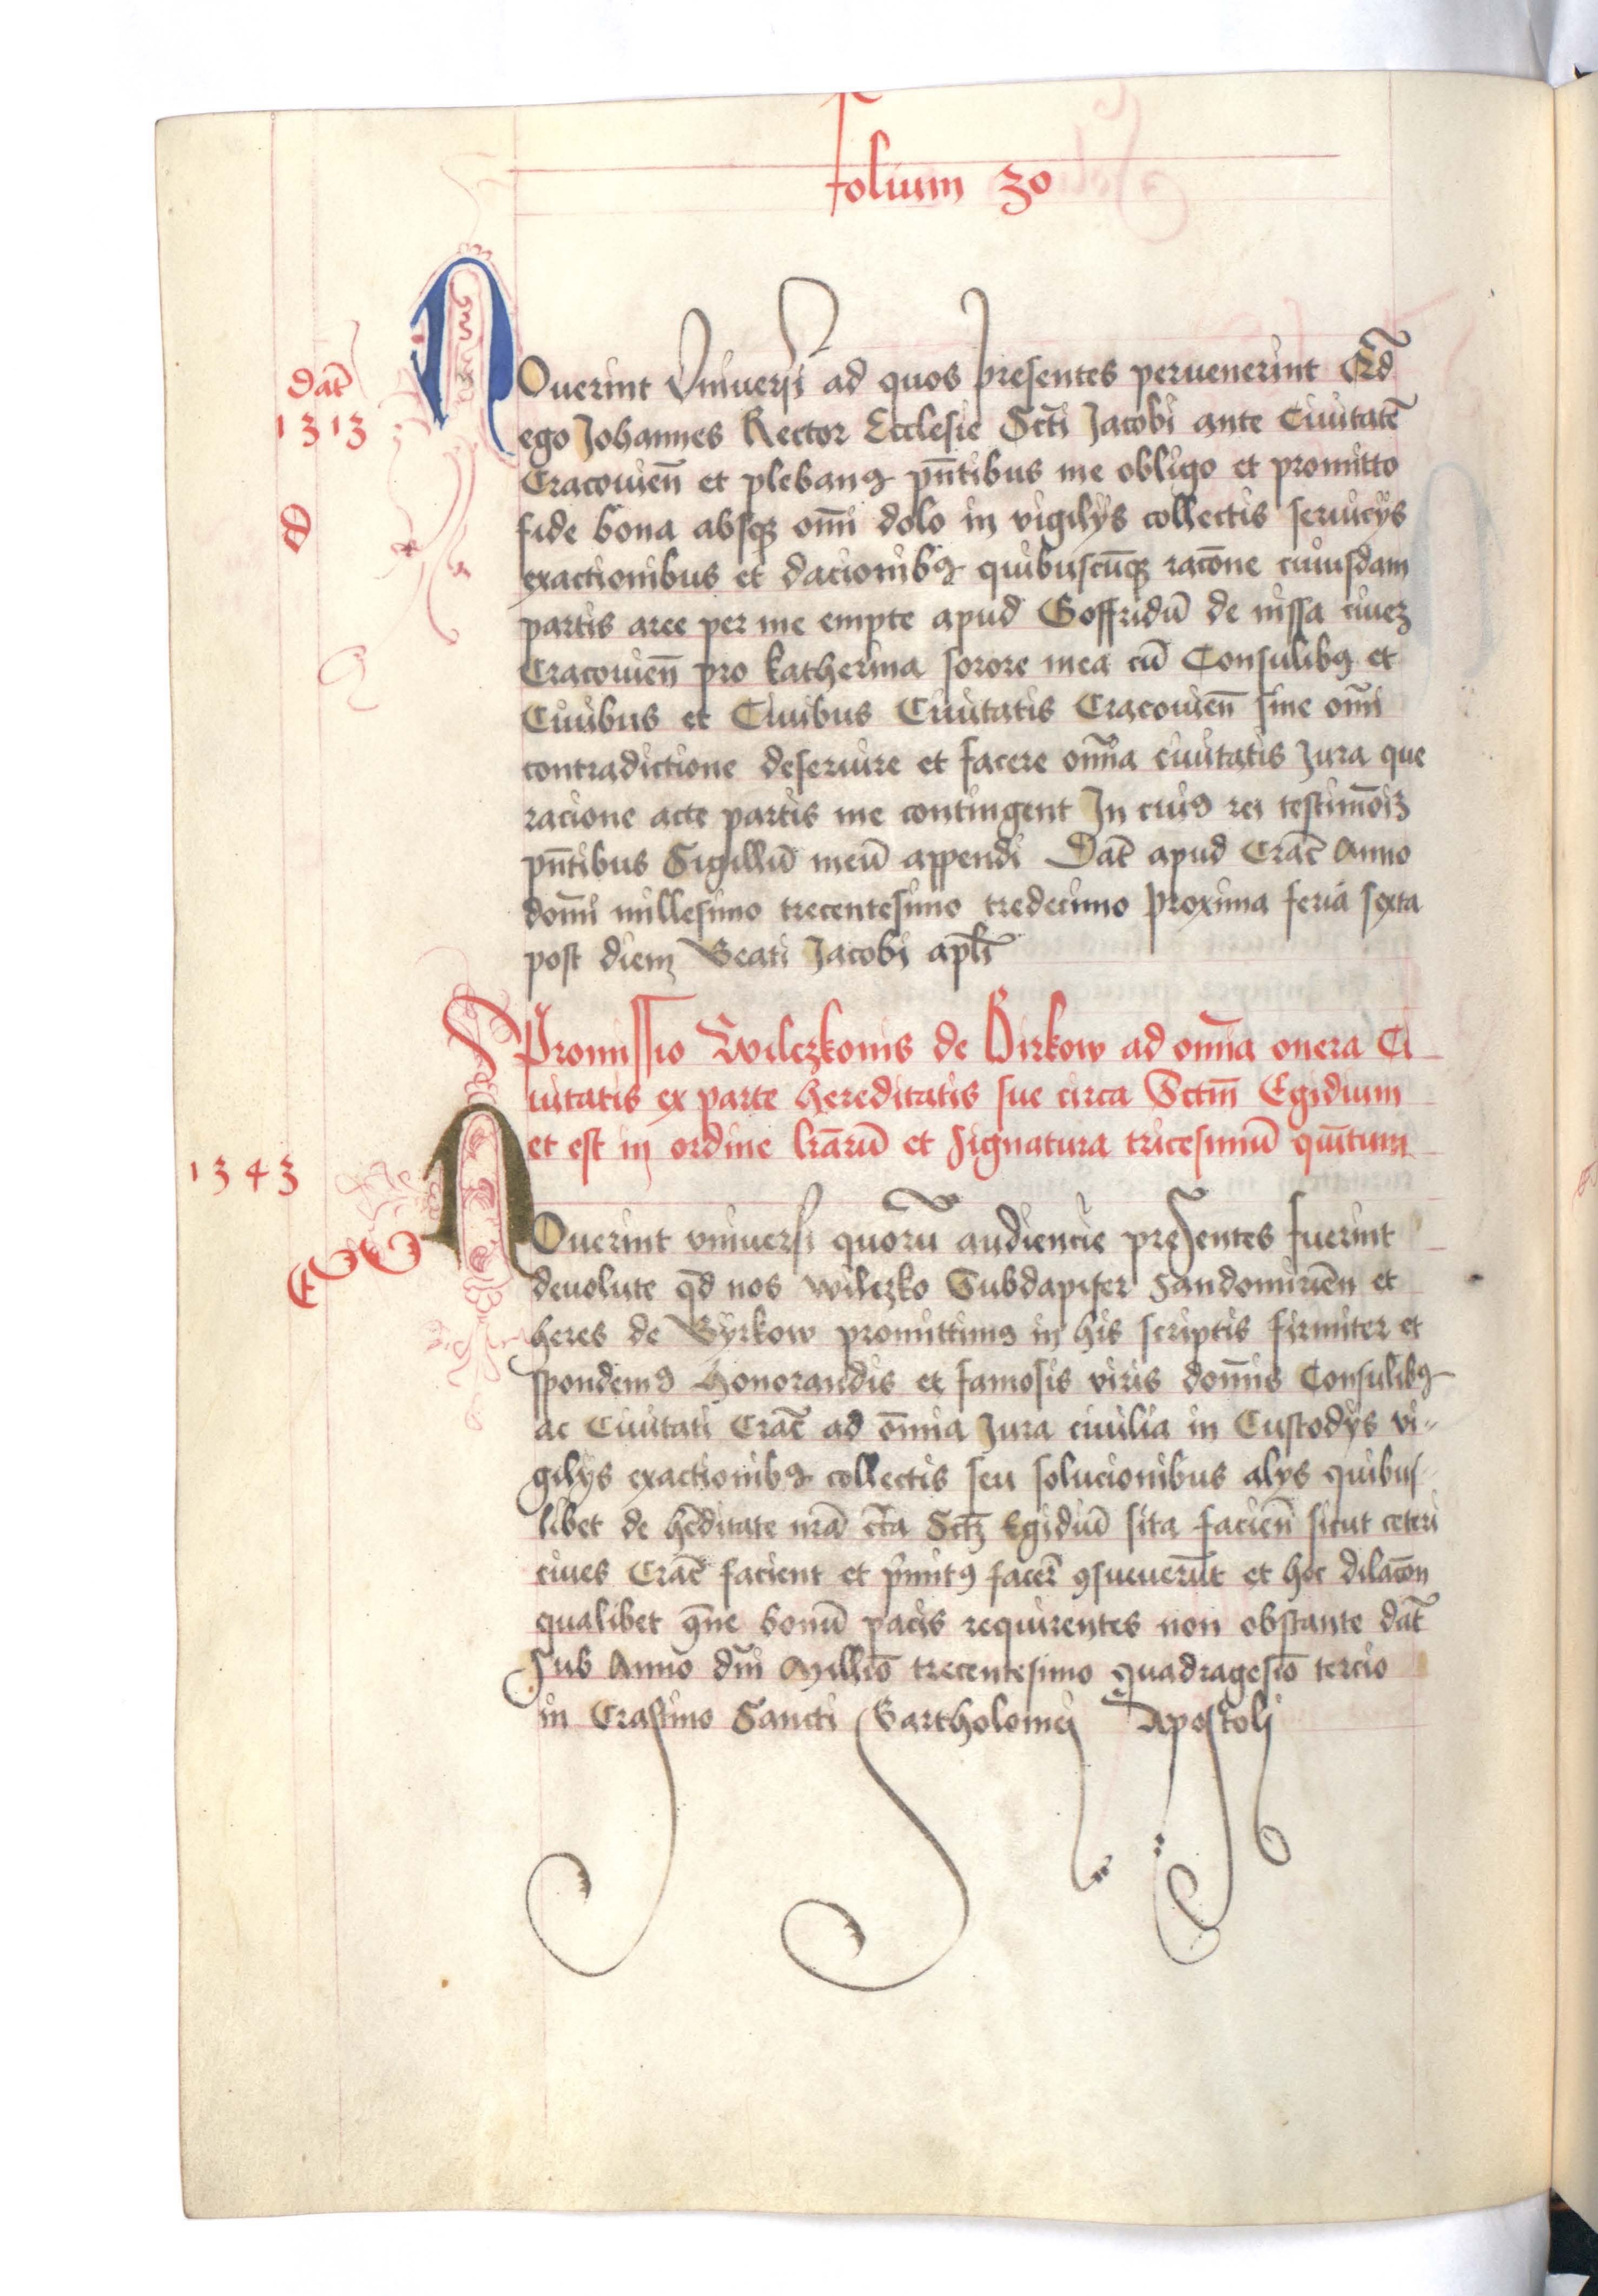 folium 30
NOuerint Vniuersi ad quos presentes peruenerint Qd̄
Dat̄
1313
ego Johannes Rector Ecclesie Sct̄i Jacobi ante Ciuitatē
Cracouien̄ et plebanꝯ pn̄tibus me obligo et promitto
fide bona absqꝫ om̄i dolo in vigilÿs collectis seruicÿs
D
exactionibus et dacionibꝯ quibuscūqꝫ racōne cuiusdam
partis aree per me empte apud Goffridū de nissa ciueꝫ
Cracouien̄ pro katherina sorore mea cū Consulibꝯ et
Ciuibus et Ciuibus Ciuitatis Cracouien̄ sine om̄i
contradictione deseruire et facere om̄ia ciuitatis Jura que
racione acte partis me contingent In cuiꝯ rei testimōiꝫ
pn̄tibus Sigillū meū appendi Dat̄ apud Crac̄ Anno
domī millesimo trecentesimo tredecimo proxima feria sexta
post diem Beati Jacobi apl̄i
Promissio Wilczkonis de Birkow ad om̄ia onera Ci
uitatis ex parte hereditatis sue circa Sctm̄ Egidium
et est in ordine lr̄arū et signatura tricesimū quītum
1343
NOuerint vniuersi quorū audiencie presentes fuerint
deuolute qd̄ nos wilczko Subdapifer Sandomiriēn et
heres de Byrkow promittimꝯ in his scriptis firmiter et
spondemꝯ Honorandis et famosis viris domīs Consulibꝯ
ac Ciuitati Crac̄ ad om̄nia Jura ciuilia in Custodÿs vi〃
gilÿs exactionibꝯ collectis seu solucionibus alÿs quibus
libet de hēditate nrā cc̄a Sctꝫ Egidiū sita facien̄ sicut ceteri
ciues Crac̄ facient et pn̄itꝯ facer̄ ꝯsueuerūt et hoc dilacōn
qualibet qn̄e bonū pacis requirentes non obstante dat̄
Sub Anno dn̄i Millīo trecentesimo quadragesīo tercio
in Crastino Sancti Bartholomei Apostoli